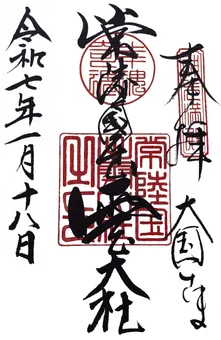 奉拝 大国さま
常陸国出雲大社
令和七年一月十八日
常陸国